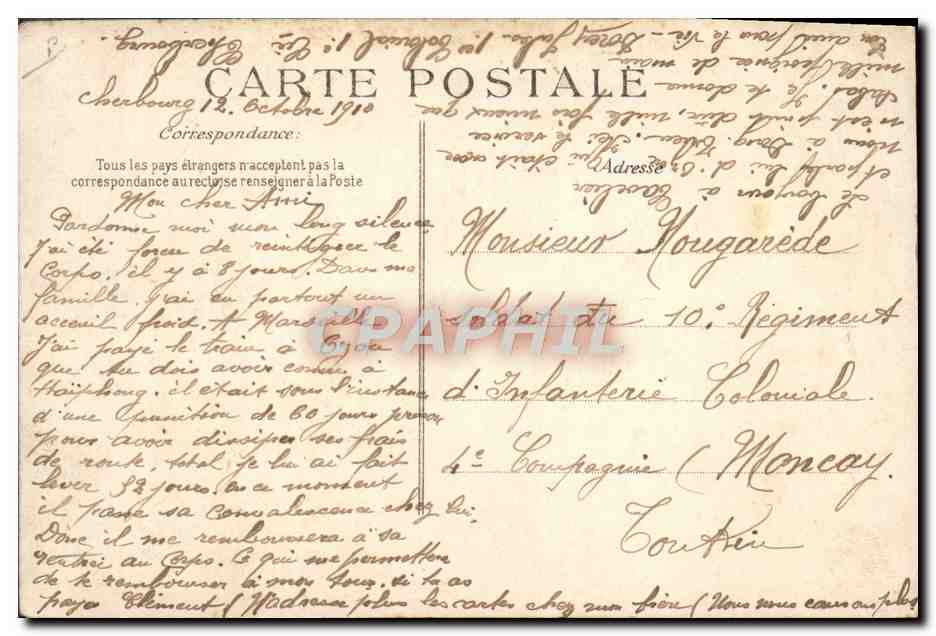 CARTE POSTALE
Cherbourg 12. Octobre 1910
Correspondance:
Tous les pays étrangers n'acceptent pas la
correspondance au recto(se renseigner à la Poste
Mon cher Ami
Pardonne moi mon long silence
J'ai été forcé de reintégrer le
Corps. il y à 8 jours. Dans ma
famille j'ai eu partout un
acceuil froid. A Marseille
J'ai payé le train à
que tu dois avoir connu à
Haïphong. il était sous l'instance
d'une punition de 60 jours prison
pour avoir dissiper ses frais
de route, total je lui ai fait
lever 52 jours. en ce moment
il passe sa convalescence chez lui.
Donc il me remboursera à sa
rentrée au Corps. Ce qui me permettra
de te rembourser à mon tour. si tu as
payé Clément (N'adresse plus les cartes chez mon frère (Nous nous causons plus
Adresse
Monsieur Mougarède
soldat du 10e Régiment
d'Infanterie Coloniale.
4e Compagnie (Moncay.
Tonkin
Le bonjour à
et parles lui d'
à Dong Trieu. Ici le service
n'est point dur, mille fois mieux que
Je te donne
mille poignée de main
Ton ami pour la vie - Jules. 1er Colonial 1e Cie Cherbourg.
CPAPHIL